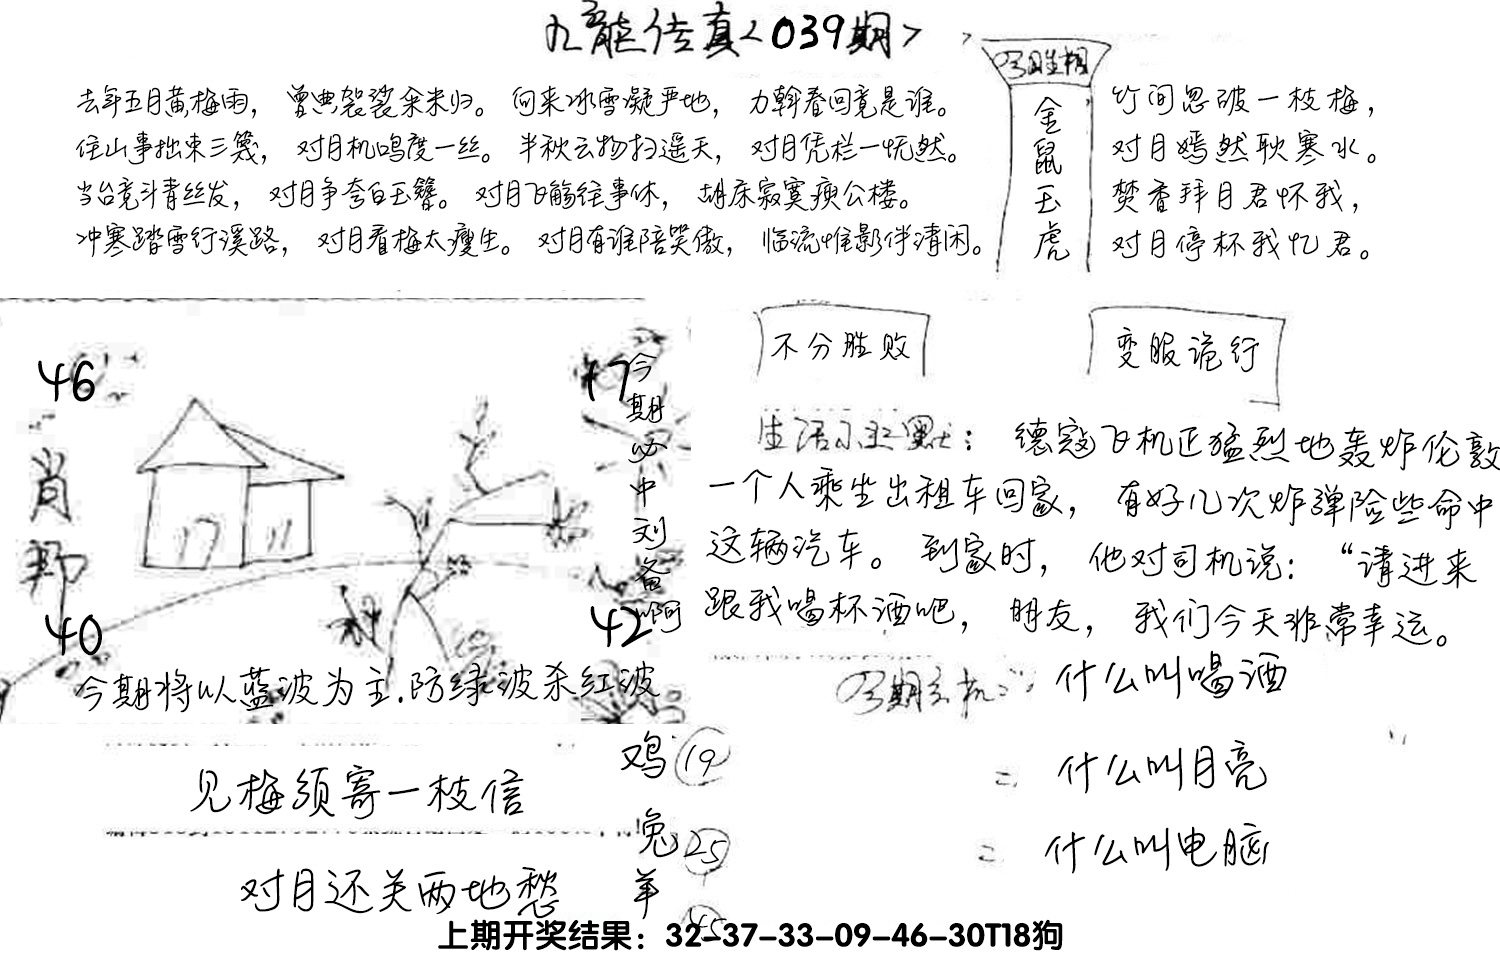 九龙传真<039期>
去年五月黄梅雨，曾典袈裟籴米归。何来冰雪凝严地，力斡春回竟是谁。
住山事拙束三篾，对月机鸣度一丝。半秋云物扫遥天，对月凭栏一怃然。
当台竞斗青丝发，对月争夸白玉簪。对月飞觞往事休，胡床寂寞瘐公楼。
冲寒踏雪行溪路，对月看梅太瘦生。对月有谁陪笑傲，临流惟影伴清闲。
今期生相
金鼠玉虎
竹间忽破一枝梅，
对月嫣然耿寒水。
焚香拜月君怀我，
对月停杯我忆君。
46
17
肖
40
42
今期必中刘备啊
今期将以蓝波为主.防绿波杀红波
不分胜败
变服诡行
生活小幽默：德寇飞机正猛烈地轰炸伦敦
一个人乘坐出租车回家，有好几次炸弹险些命中
这辆汽车。到家时，他对司机说：“请进来
跟我喝杯酒吧，朋友，我们今天非常幸运。
今期玄机：什么叫喝酒
= 什么叫月亮
= 什么叫电脑
见梅须寄一枝信
对月还关两地愁
鸡 19
兔 25
羊 45
上期开奖结果：32-37-33-09-46-30T18狗